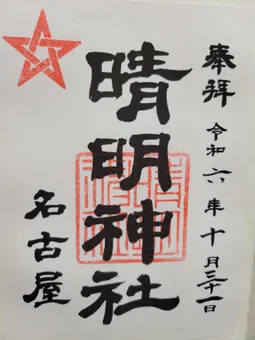 奉拝
令和六年十月三十一日
晴明神社
名古屋